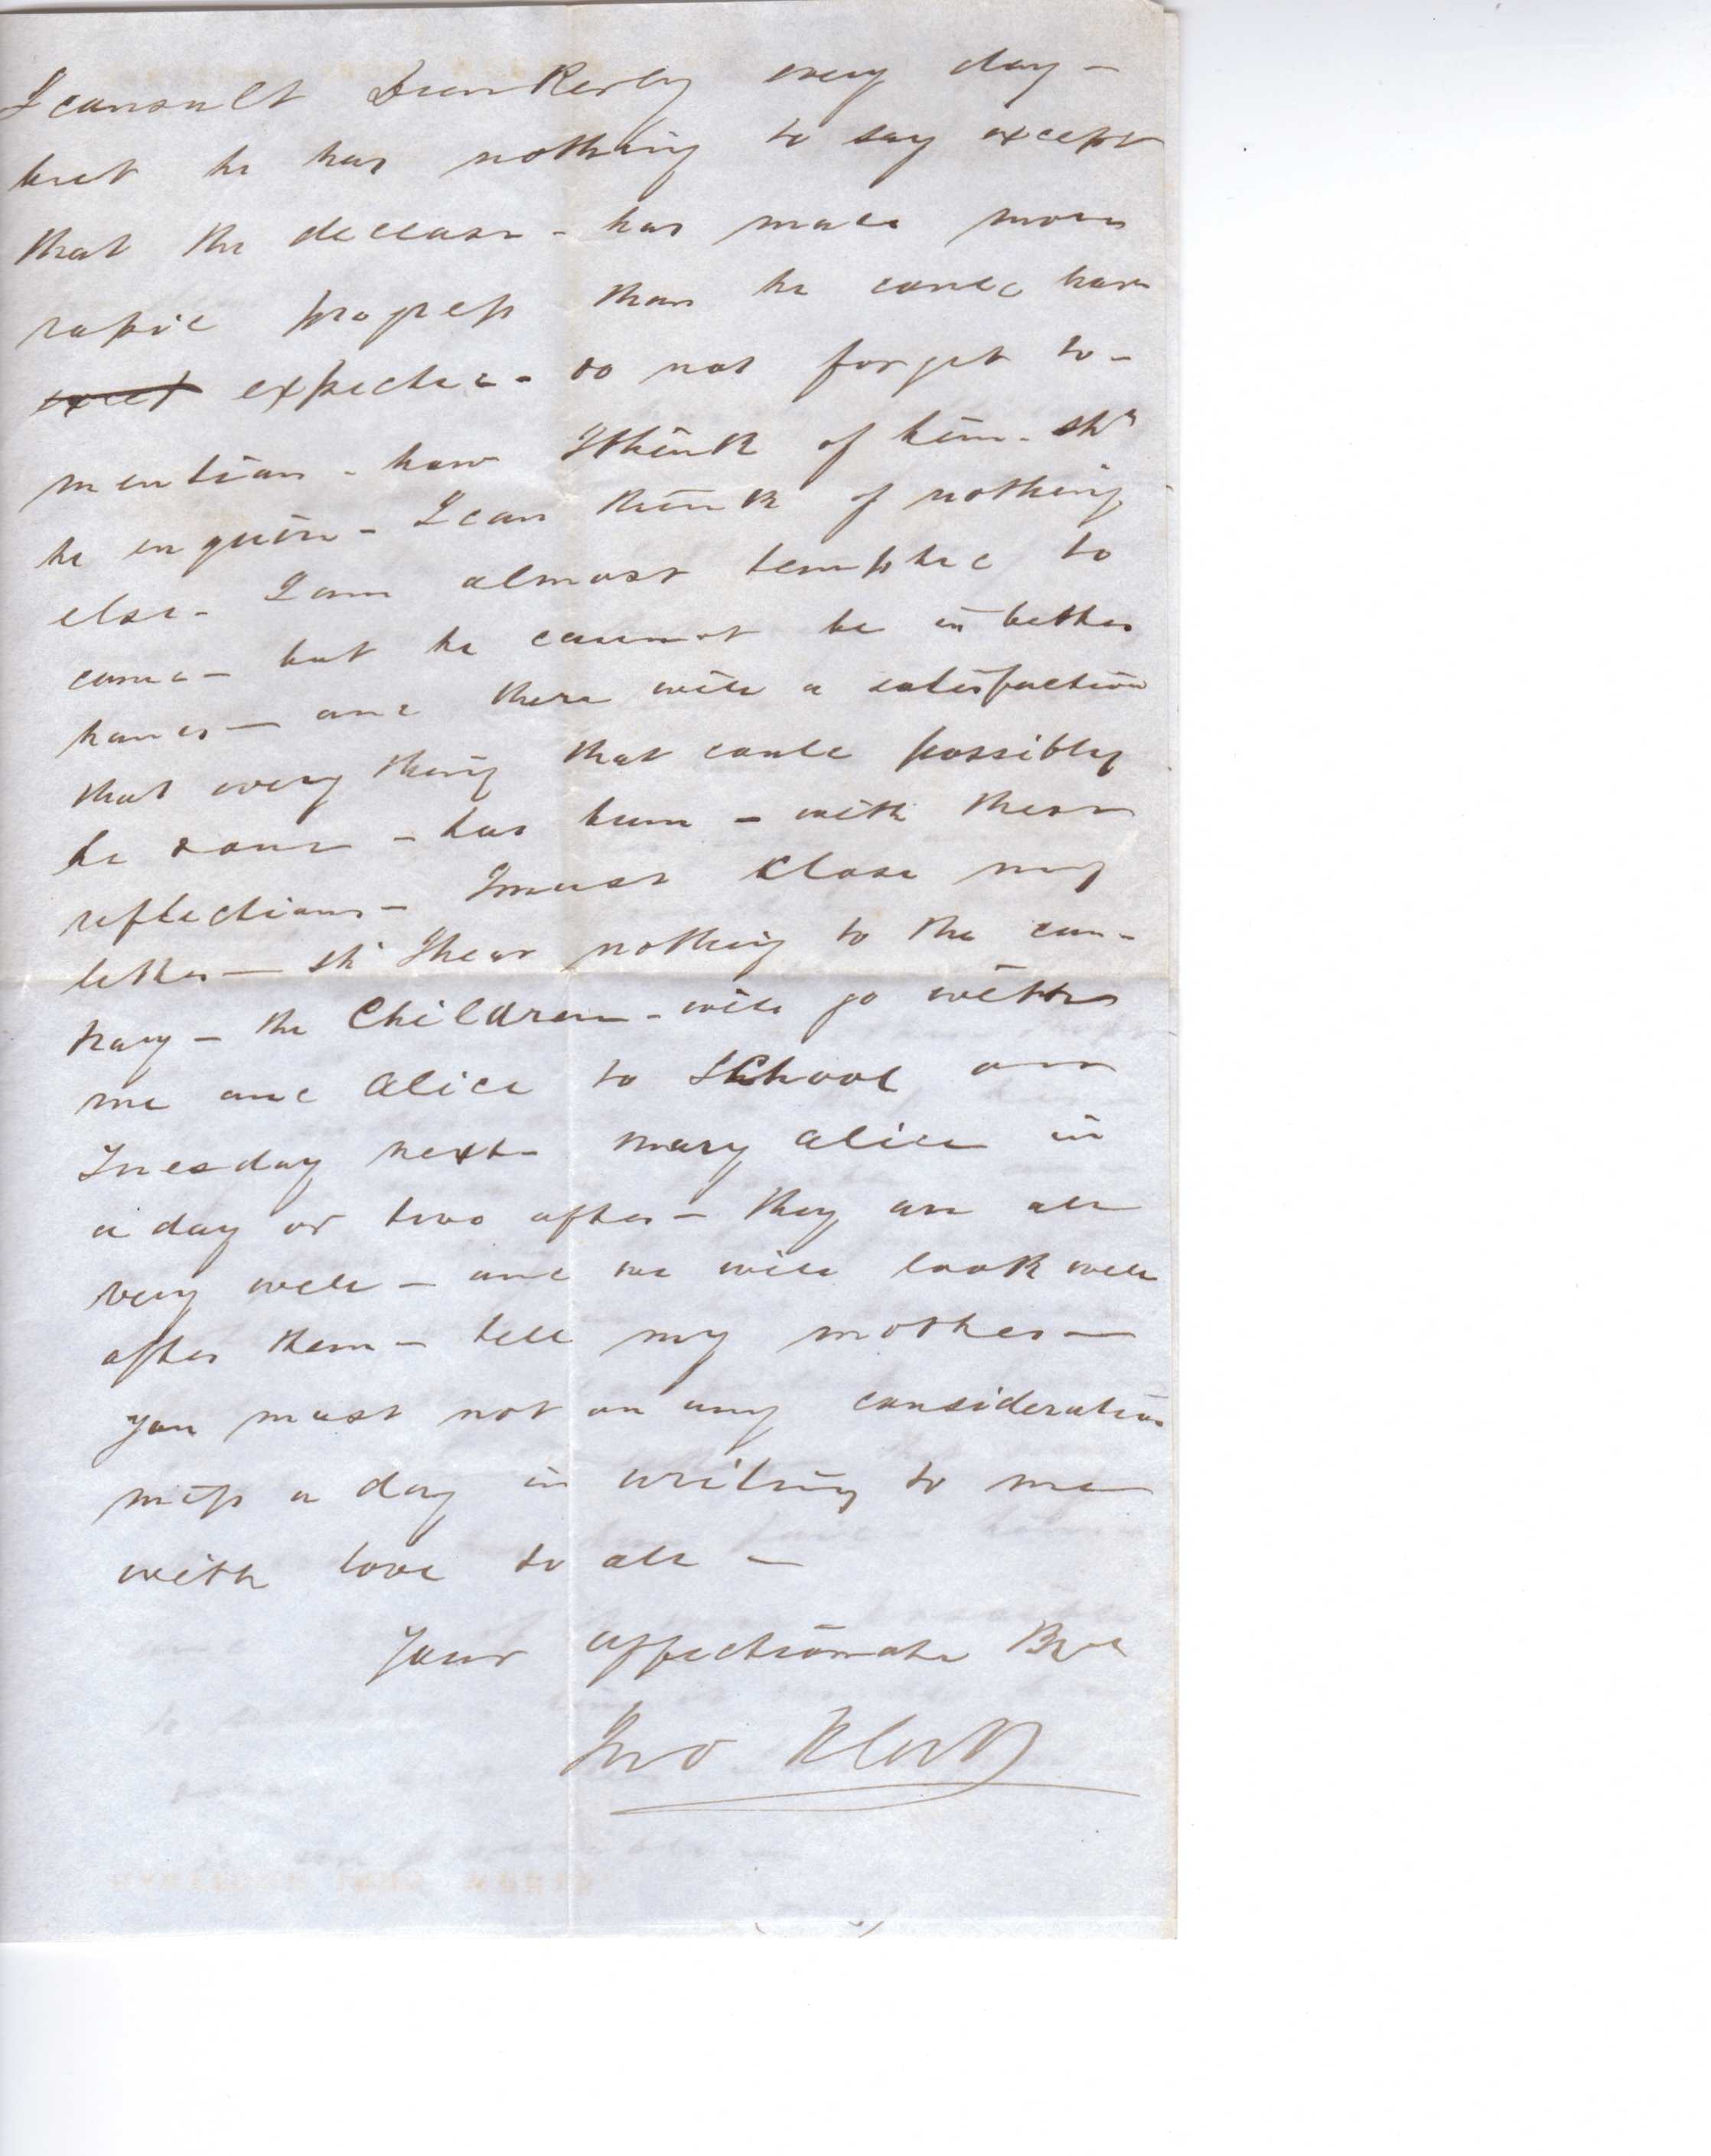 I consult Dunkerly every day -
but he has nothing to say except
that the decease - has made more
rapid progress than he could have
expected - do not forget to -
mention - how I think of him - shd
he enquire - I can think of nothing
else - I am almost tempted to
come - but he cannot be in better
hands - and there will a satisfaction
that every thing that could possibly
be done - has been - with these
reflections - I must close my
letter - shd I hear nothing to the con-
trary - the Children - will go with
me and Alice to School on
Tuesday next - Mary Alice in
a day or two after - they are all
very well - and we will look well
after them - tell my mother -
you must not on any consideration
miss a day in writing to me
with love to all -
Your affectionate Bro
Jno